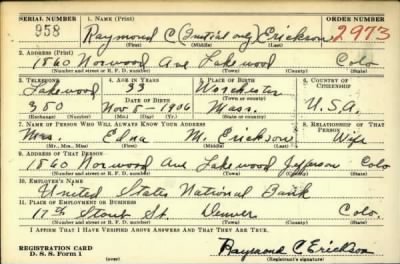 SERIAL NUMBER 1. NAME (Print) ORDER NUMBER
958 Raymond C (Initial only) Erickson 2973
(First) (Middle) (Last)
2. ADDRESS (Print)
1860 Norwood Ave Lakewood Colo
(Number and street or R. F. D. number) (Town) (County) (State)
3. TELEPHONE 4. AGE IN YEARS 5. PLACE OF BIRTH 6. COUNTRY OF CITIZENSHIP
Lakewood 33 Worchester
DATE OF BIRTH (Town or county)
380 Nov 8-1906 Mass. U.S.A.
(Exchange) (Number) (Mo.) (Day) (Yr.) (State or country)
7. NAME OF PERSON WHO WILL ALWAYS KNOW YOUR ADDRESS 8. RELATIONSHIP OF THAT PERSON
Mrs. Edna M. Erickson Wife
(Mr., Mrs., Miss) (First) (Middle) (Last)
9. ADDRESS OF THAT PERSON
1860 Norwood Ave Lakewood Jefferson Colo
(Number and street or R. F. D. number) (Town) (County) (State)
10. EMPLOYER'S NAME
United States National Bank
11. PLACE OF EMPLOYMENT OR BUSINESS
17th Stout St. Denver Colo.
(Number and street or R. F. D. number) (Town) (County) (State)
I AFFIRM THAT I HAVE VERIFIED ABOVE ANSWERS AND THAT THEY ARE TRUE.
REGISTRATION CARD
D. S. S. Form 1 (over) Raymond C Erickson
(Registrant's signature)